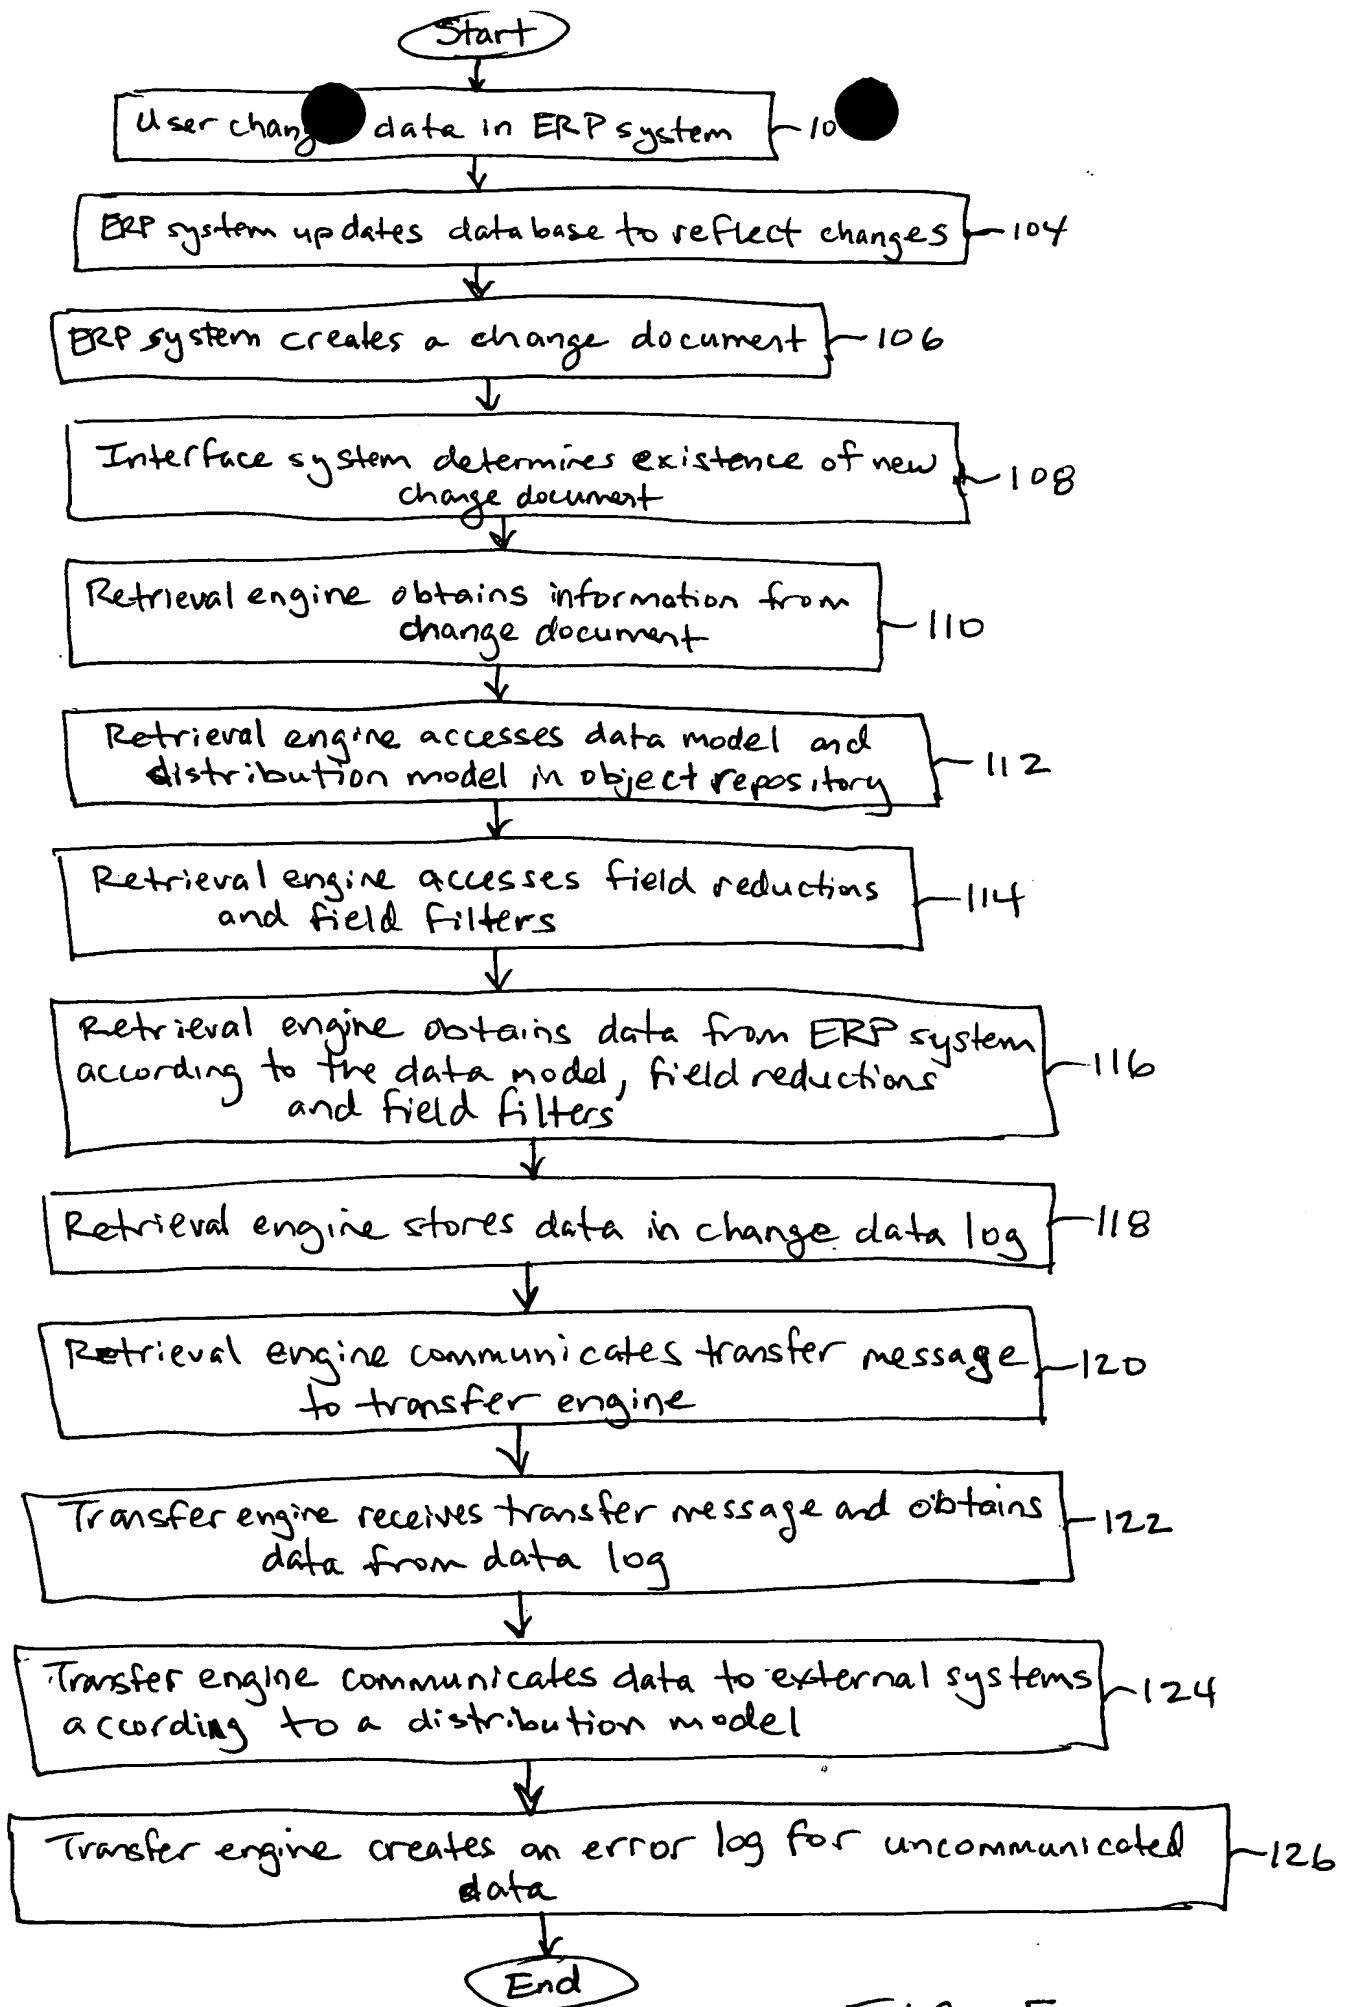 Start
User data in ERP system
ERP system updates database to reflect changes 104
ERP system creates a change document 106
Interface system determines existence of new
change document
108
Retrieval engine obtains information from
change document
110
Retrieval engine accesses data model and
distribution model in object repository
112
Retrieval engine accesses field reductions
and field filters
114
Retrieval engine obtains data from ERP system
according to the data model, field reductions
and field filters
116
Retrieval engine stores data in change data log 118
Retrieval engine communicates transfer message
to transfer engine
120
Transfer engine receives transfer message and obtains
data from data log
122
Transfer engine communicates data to external systems
according to a distribution model
124
Transfer engine creates an error log for uncommunicated
data
126
End